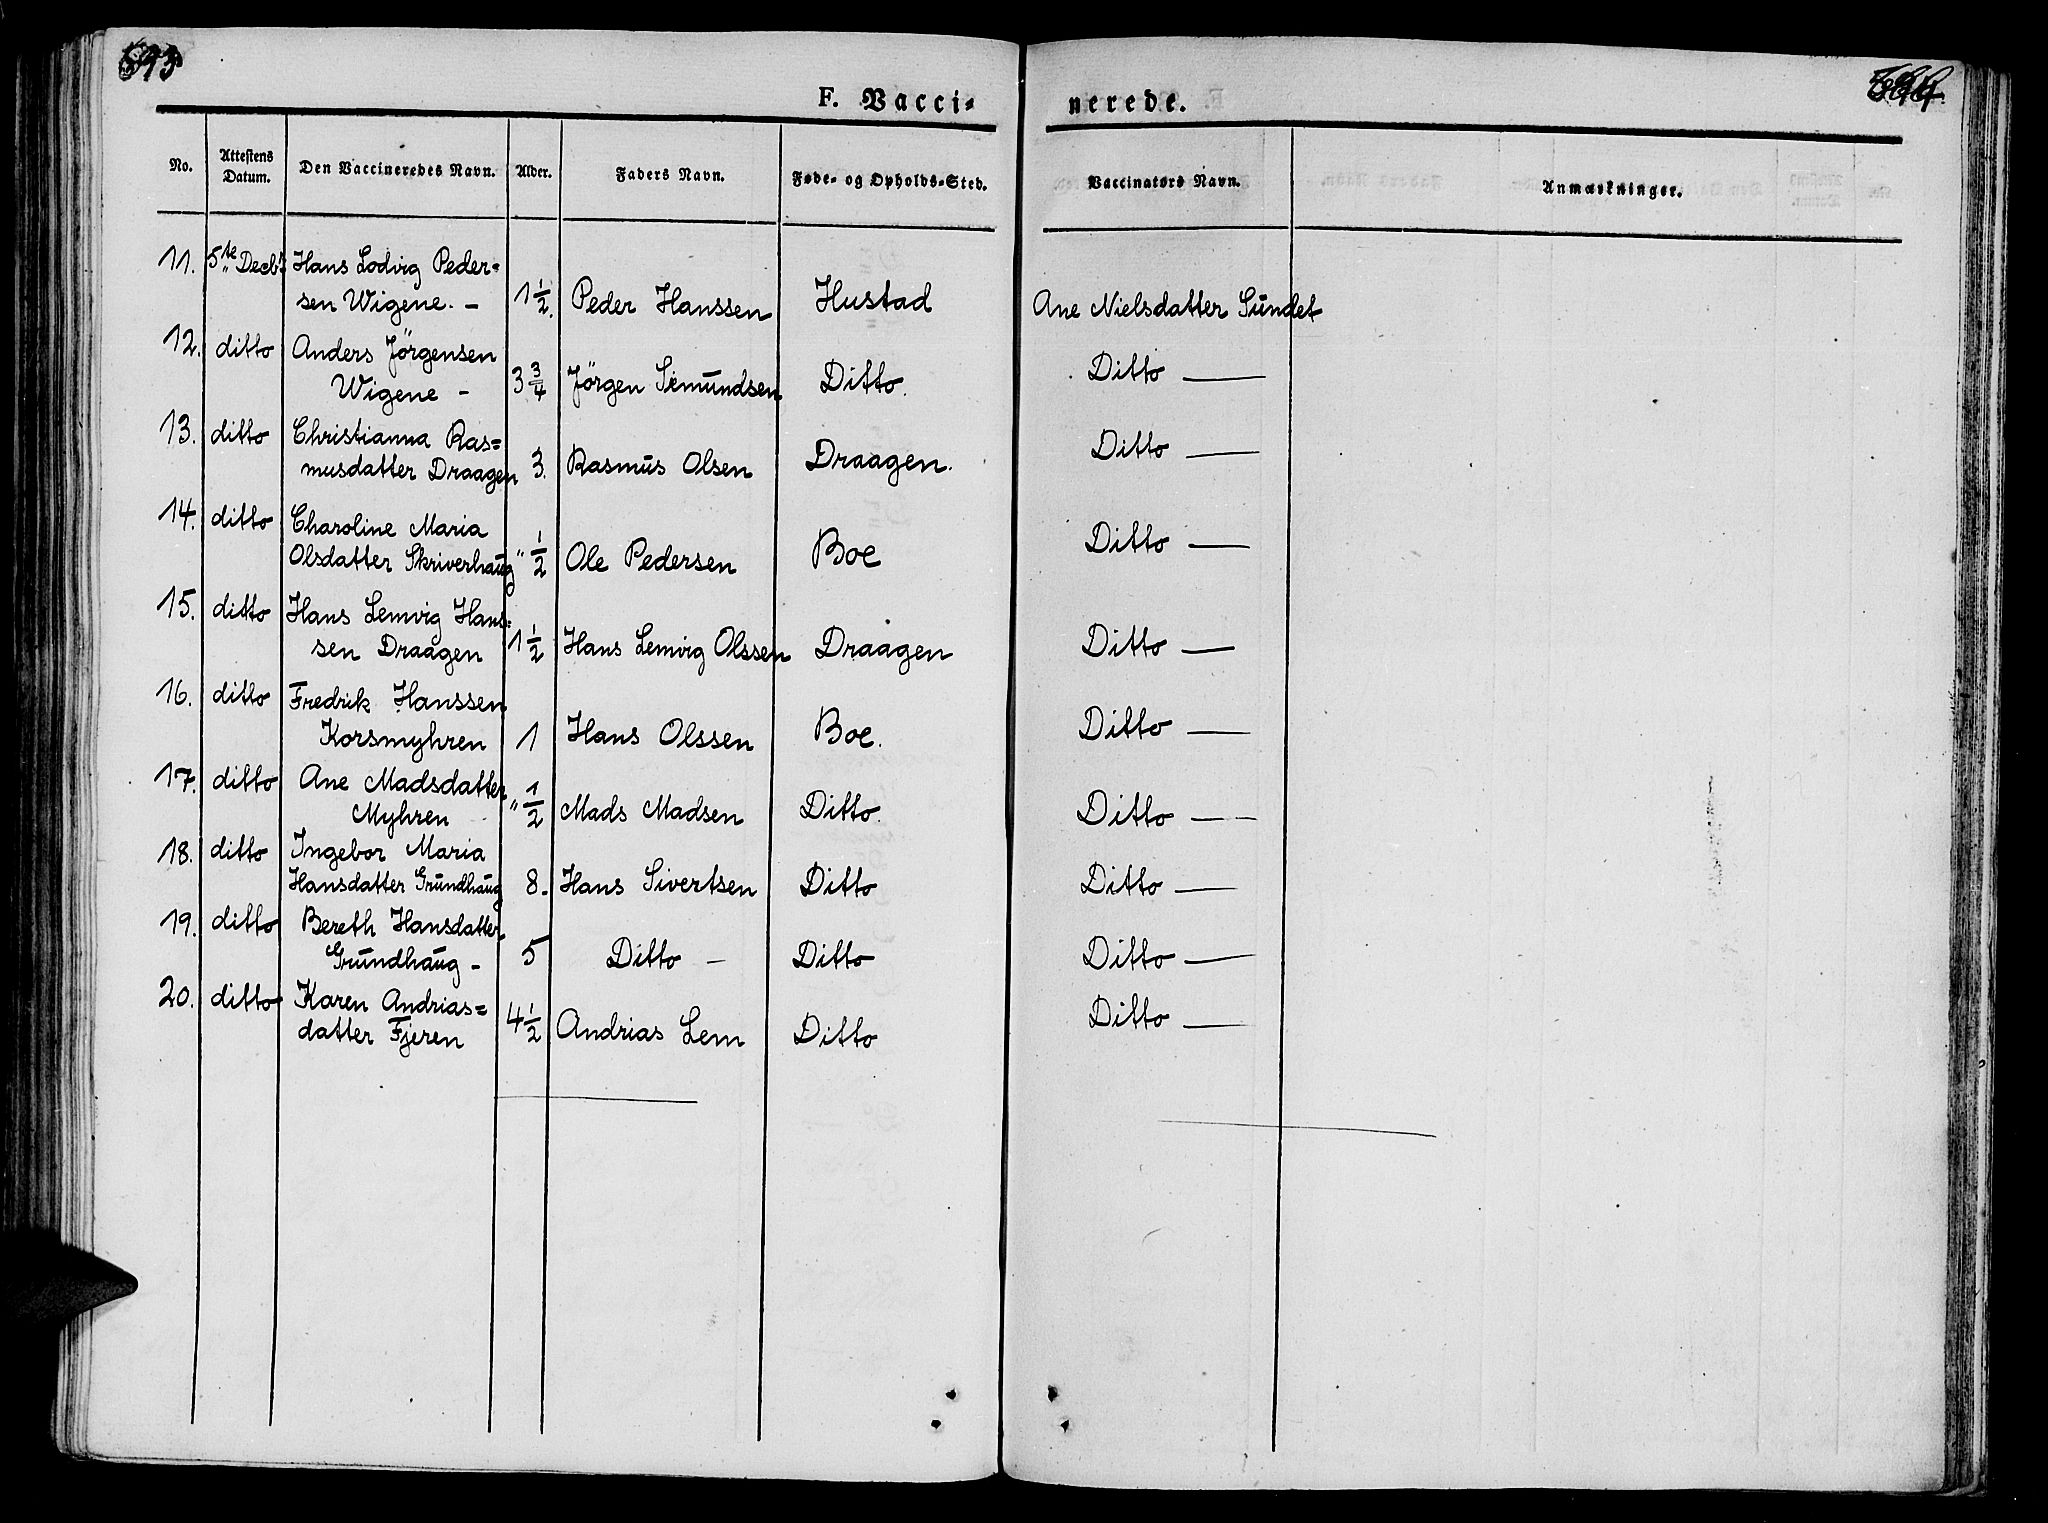 F. Vacci-
nerede.
No.
Attestens Datum.
Den Vaccineredes Navn.
Alder.
Faders Navn.
Føde- og Opholds-Sted.
Vaccinatørs Navn.
Anmærkninger.
11. 5te Decbr Hans Lodvig Peder=
sen Wigene. - 1 1/2. Peder Hanssen Hustad Ane Nielsdatter Sundet
12. ditto Anders Jörgensen
Wigene - 3 3/4 Jörgen Semundsen Ditto. Ditto —
13. ditto Christianna Ras=
musdatter Draagen 3. Rasmus Olsen Draagen. Ditto —
14. ditto Charoline Maria
Olsdatter Skriverhaug " 1/2 Ole Pedersen Boe Ditto —
15. ditto Hans Lemvig Hans=
sen Draagen 1 1/2 Hans Lemvig Olssen Draagen Ditto —
16. ditto Fredrik Hanssen
Korsmyhren 1 Hans Olssen Boe. Ditto —
17. ditto Ane Madsdatter
Myhren " 1/2 Mads Madsen Ditto. Ditto —
18. ditto Ingebor Maria
Hansdatter Grundhaug 8. Hans Sivertsen Ditto Ditto —
19. ditto Bereth Hansdatter
Grundhaug - 5 Ditto - Ditto Ditto —
20. ditto Karen Andrias=
datter Fjeren 4 1/2 Andrias Lem Ditto Ditto —